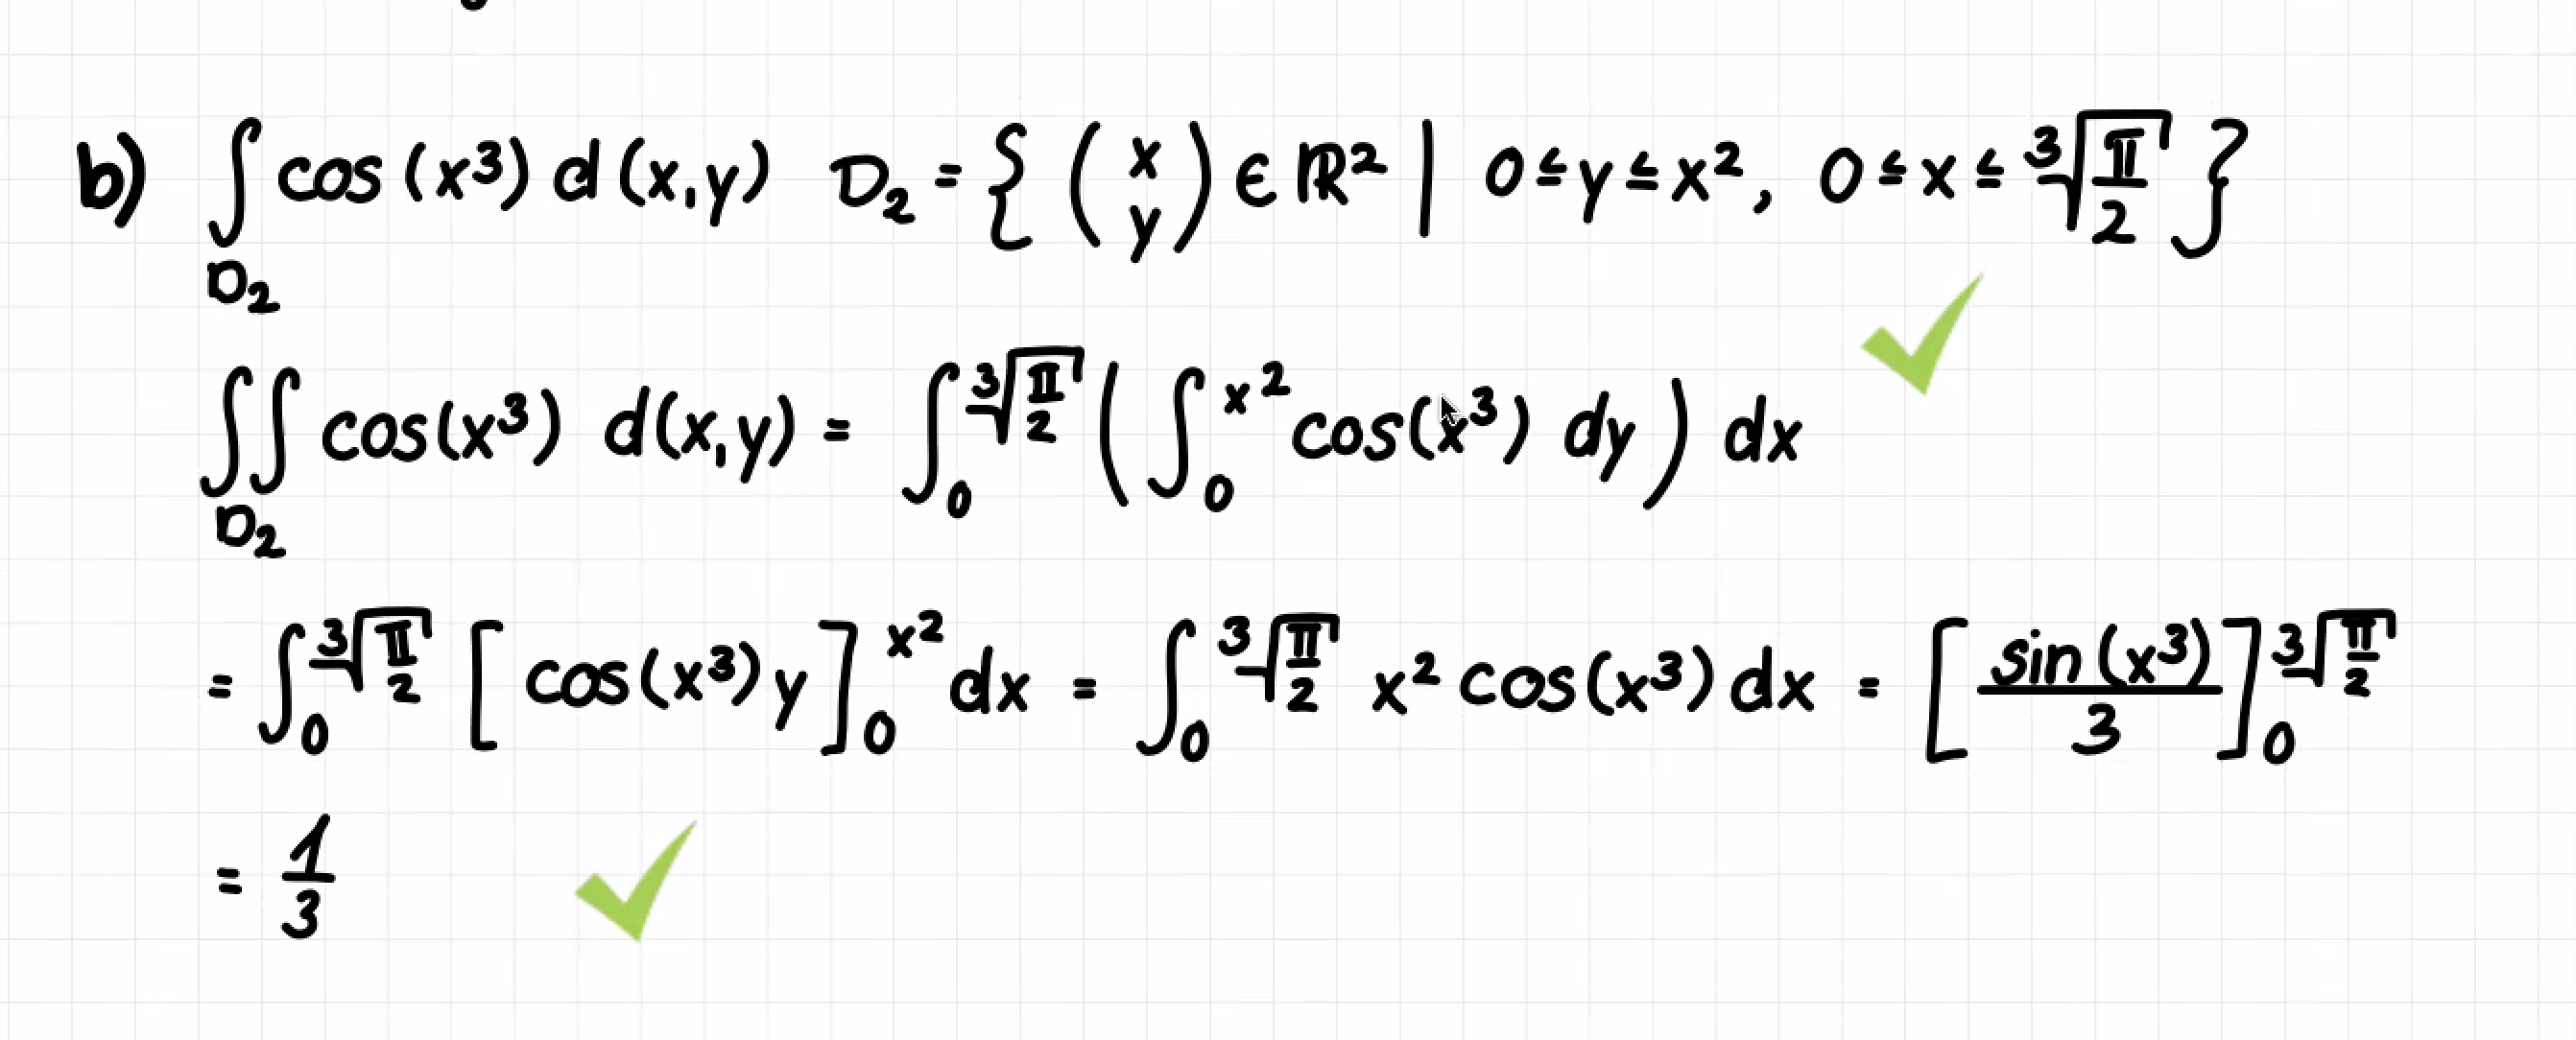 b) ∫_{D₂} cos(x³) d(x,y) D₂ = { (x y) ∈ ℝ² | 0 ≤ y ≤ x², 0 ≤ x ≤ ∛(π/2) }
∬_{D₂} cos(x³) d(x,y) = ∫_0^{∛(π/2)} ( ∫_0^{x²} cos(x³) dy ) dx
= ∫_0^{∛(π/2)} [ cos(x³) y ]_0^{x²} dx = ∫_0^{∛(π/2)} x² cos(x³) dx = [ sin(x³)/3 ]_0^{∛(π/2)}
= 1/3